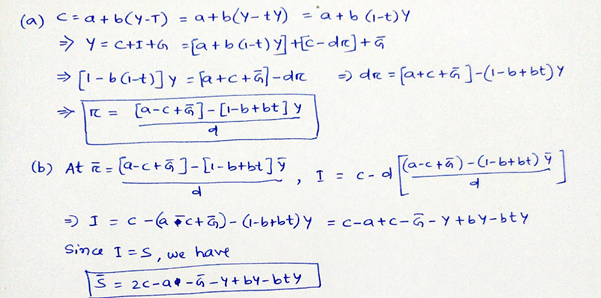 (a) C = a + b(Y-T) = a + b(Y-tY) = a + b(1-t)Y
⇒ Y = C+I+G = [a+b(1-t)Y]+[c-dr]+G̅
⇒ [1-b(1-t)]Y = [a+c+G̅]-dr ⇒ dr = [a+c+G̅]-(1-b+bt)Y
⇒ r = [a-c+G̅]-[1-b+bt]Y / d
(b) At r̅ = [a-c+G̅]-[1-b+bt]Y̅ / d , I = c-d[(a-c+G̅)-(1-b+bt)Y̅ / d]
⇒ I = c-(a c+G̅)-(1-b+bt)Y = c-a+c-G̅-Y+bY-btY
Since I=S, we have
S̅ = 2c-a-G̅-Y+bY-btY